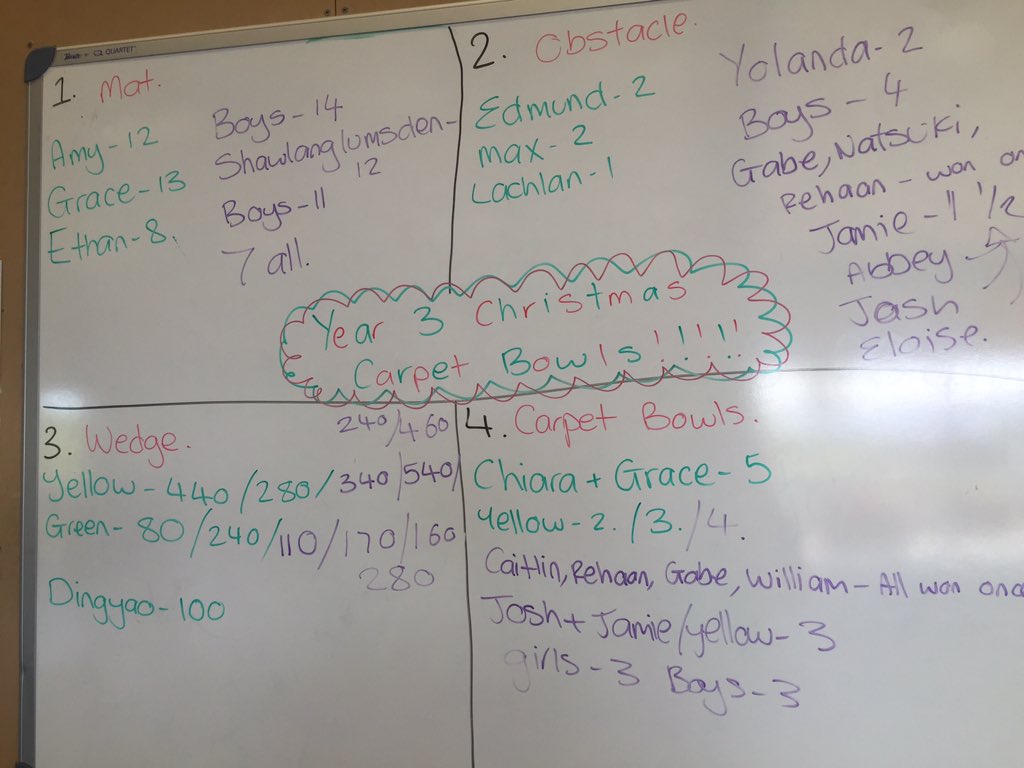 QUARTET
1. Mat.
Amy-12
Grace-13
Ethan-8.
Boys-14
Shawlanglumsden-
12
Boys-11
7 all.
2. Obstacle.
Edmund-2
Max-2
Lachlan-1
Yolanda-2
Boys-4
Gabe, Natsuki,
Rehaan - won on
Jamie-1 1/2
Abbey
Josh
Eloise.
Year 3 Christmas
Carpet Bowls!!!!!
3. Wedge.
240/460
Yellow-440/280/340/540/
Green-80/240/110/170/160
280
Dingyao-100
4. Carpet Bowls.
Chiara + Grace-5
Yellow-2./3./4.
Caitlin, Rehaan, Gabe, William-All won once
Josh+Jamie/yellow-3
girls-3 Boys-3